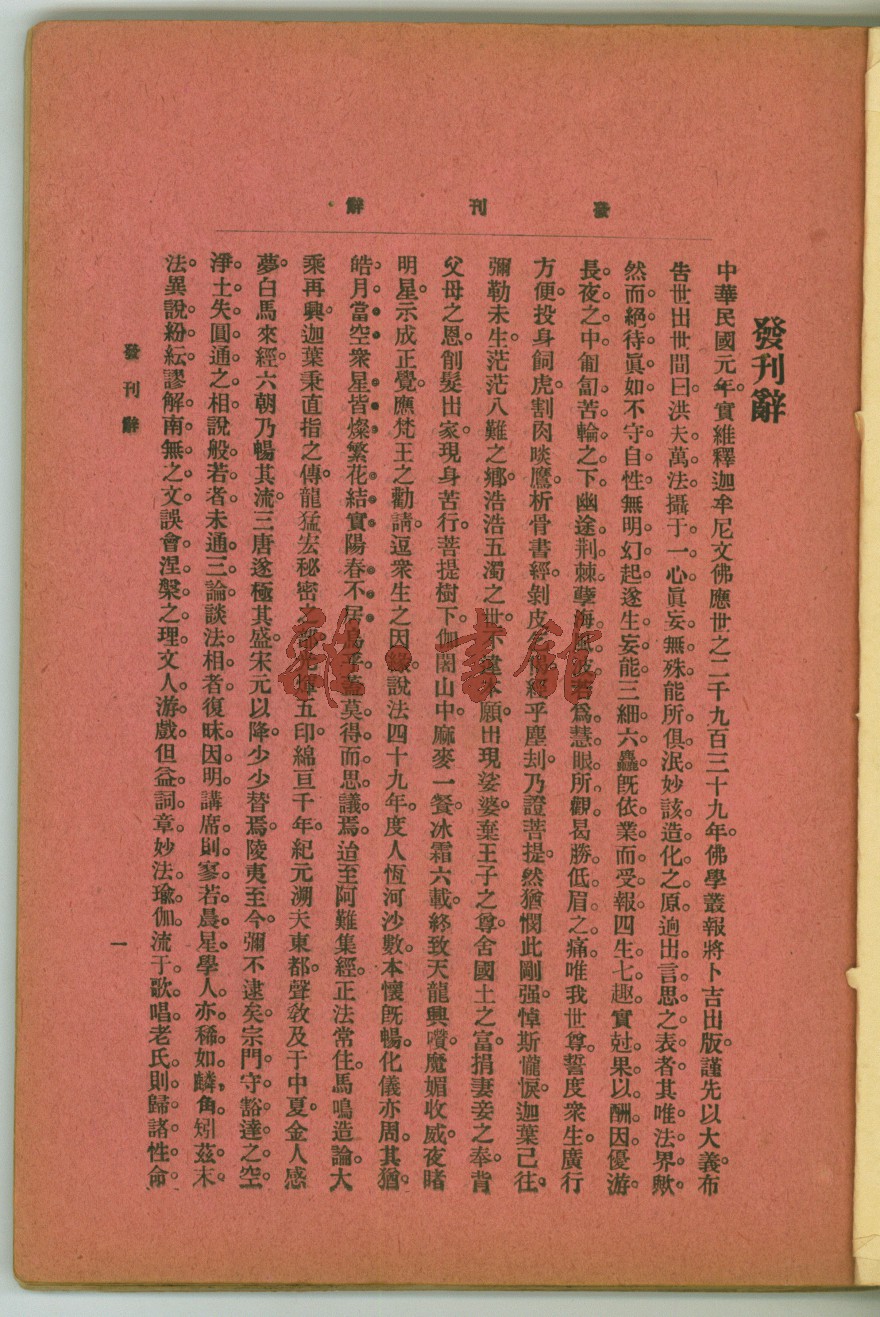 發刊辭
發刊辭
中華民國元年。實維釋迦牟尼文佛應世之二千九百三十九年。佛學叢報將卜吉出版。謹先以大義布
告世出世間曰。洪夫萬法攝于一心。眞妄無殊。能所俱泯。妙該造化之原。逈出言思之表者。其唯法界歟。
然而絕待眞如。不守自性。無明幻起。遂生妄能。三細六麤。旣依業而受報。四生七趣。實尅果以酬因。優游
長夜之中。匍匐苦輪之下。幽途荆棘。孽海風波。若爲慧眼所觀。曷勝低眉之痛。唯我世尊。誓度衆生。廣行
方便。投身飼虎。割肉啖鷹。析骨書經。剝皮乎塵刦。乃證菩提。然猶憫此剛强。悼斯儱悷。迦葉已往。
彌勒未生。茫茫八難之鄕。浩浩五濁之世。不違本願。出現娑婆。棄王子之尊。舍國土之富。捐妻妾之奉。背
父母之恩。削髮出家。現身苦行。菩提樹下。伽闍山中。麻麥一餐。冰霜六載。終致天龍興囋。魔媚收威。夜睹
明星。示成正覺。應梵王之勸請。逗衆生之因緣。說法四十九年。度人恆河沙數。本懷旣暢。化儀亦周。其猶
皓月當空。衆星皆燦。繁花結實。陽春不居。烏乎。蓋莫得而思議焉。迨至阿難集經。正法常住。馬鳴造論。大
乘再興。迦葉秉直指之傳。龍猛宏秘密之五印。綿亘千年。紀元溯夫東都。聲敎及于中夏。金人感
夢。白馬來經。六朝乃暢其流。三唐遂極其盛。宋元以降。少少替焉。陵夷至今。彌不逮矣。宗門守豁達之空。
淨土失圓通之相。說般若者。未通三論。談法相者。復昧因明。講席則寥若晨星。學人亦稀如麟角。矧茲末
法。異說紛紜。謬解南無之文。誤會涅槃之理。文人游戲。但益詞章。妙法瑜伽。流于歌唱。老氏則歸諸性命。
發刊辭
一
雜·書館